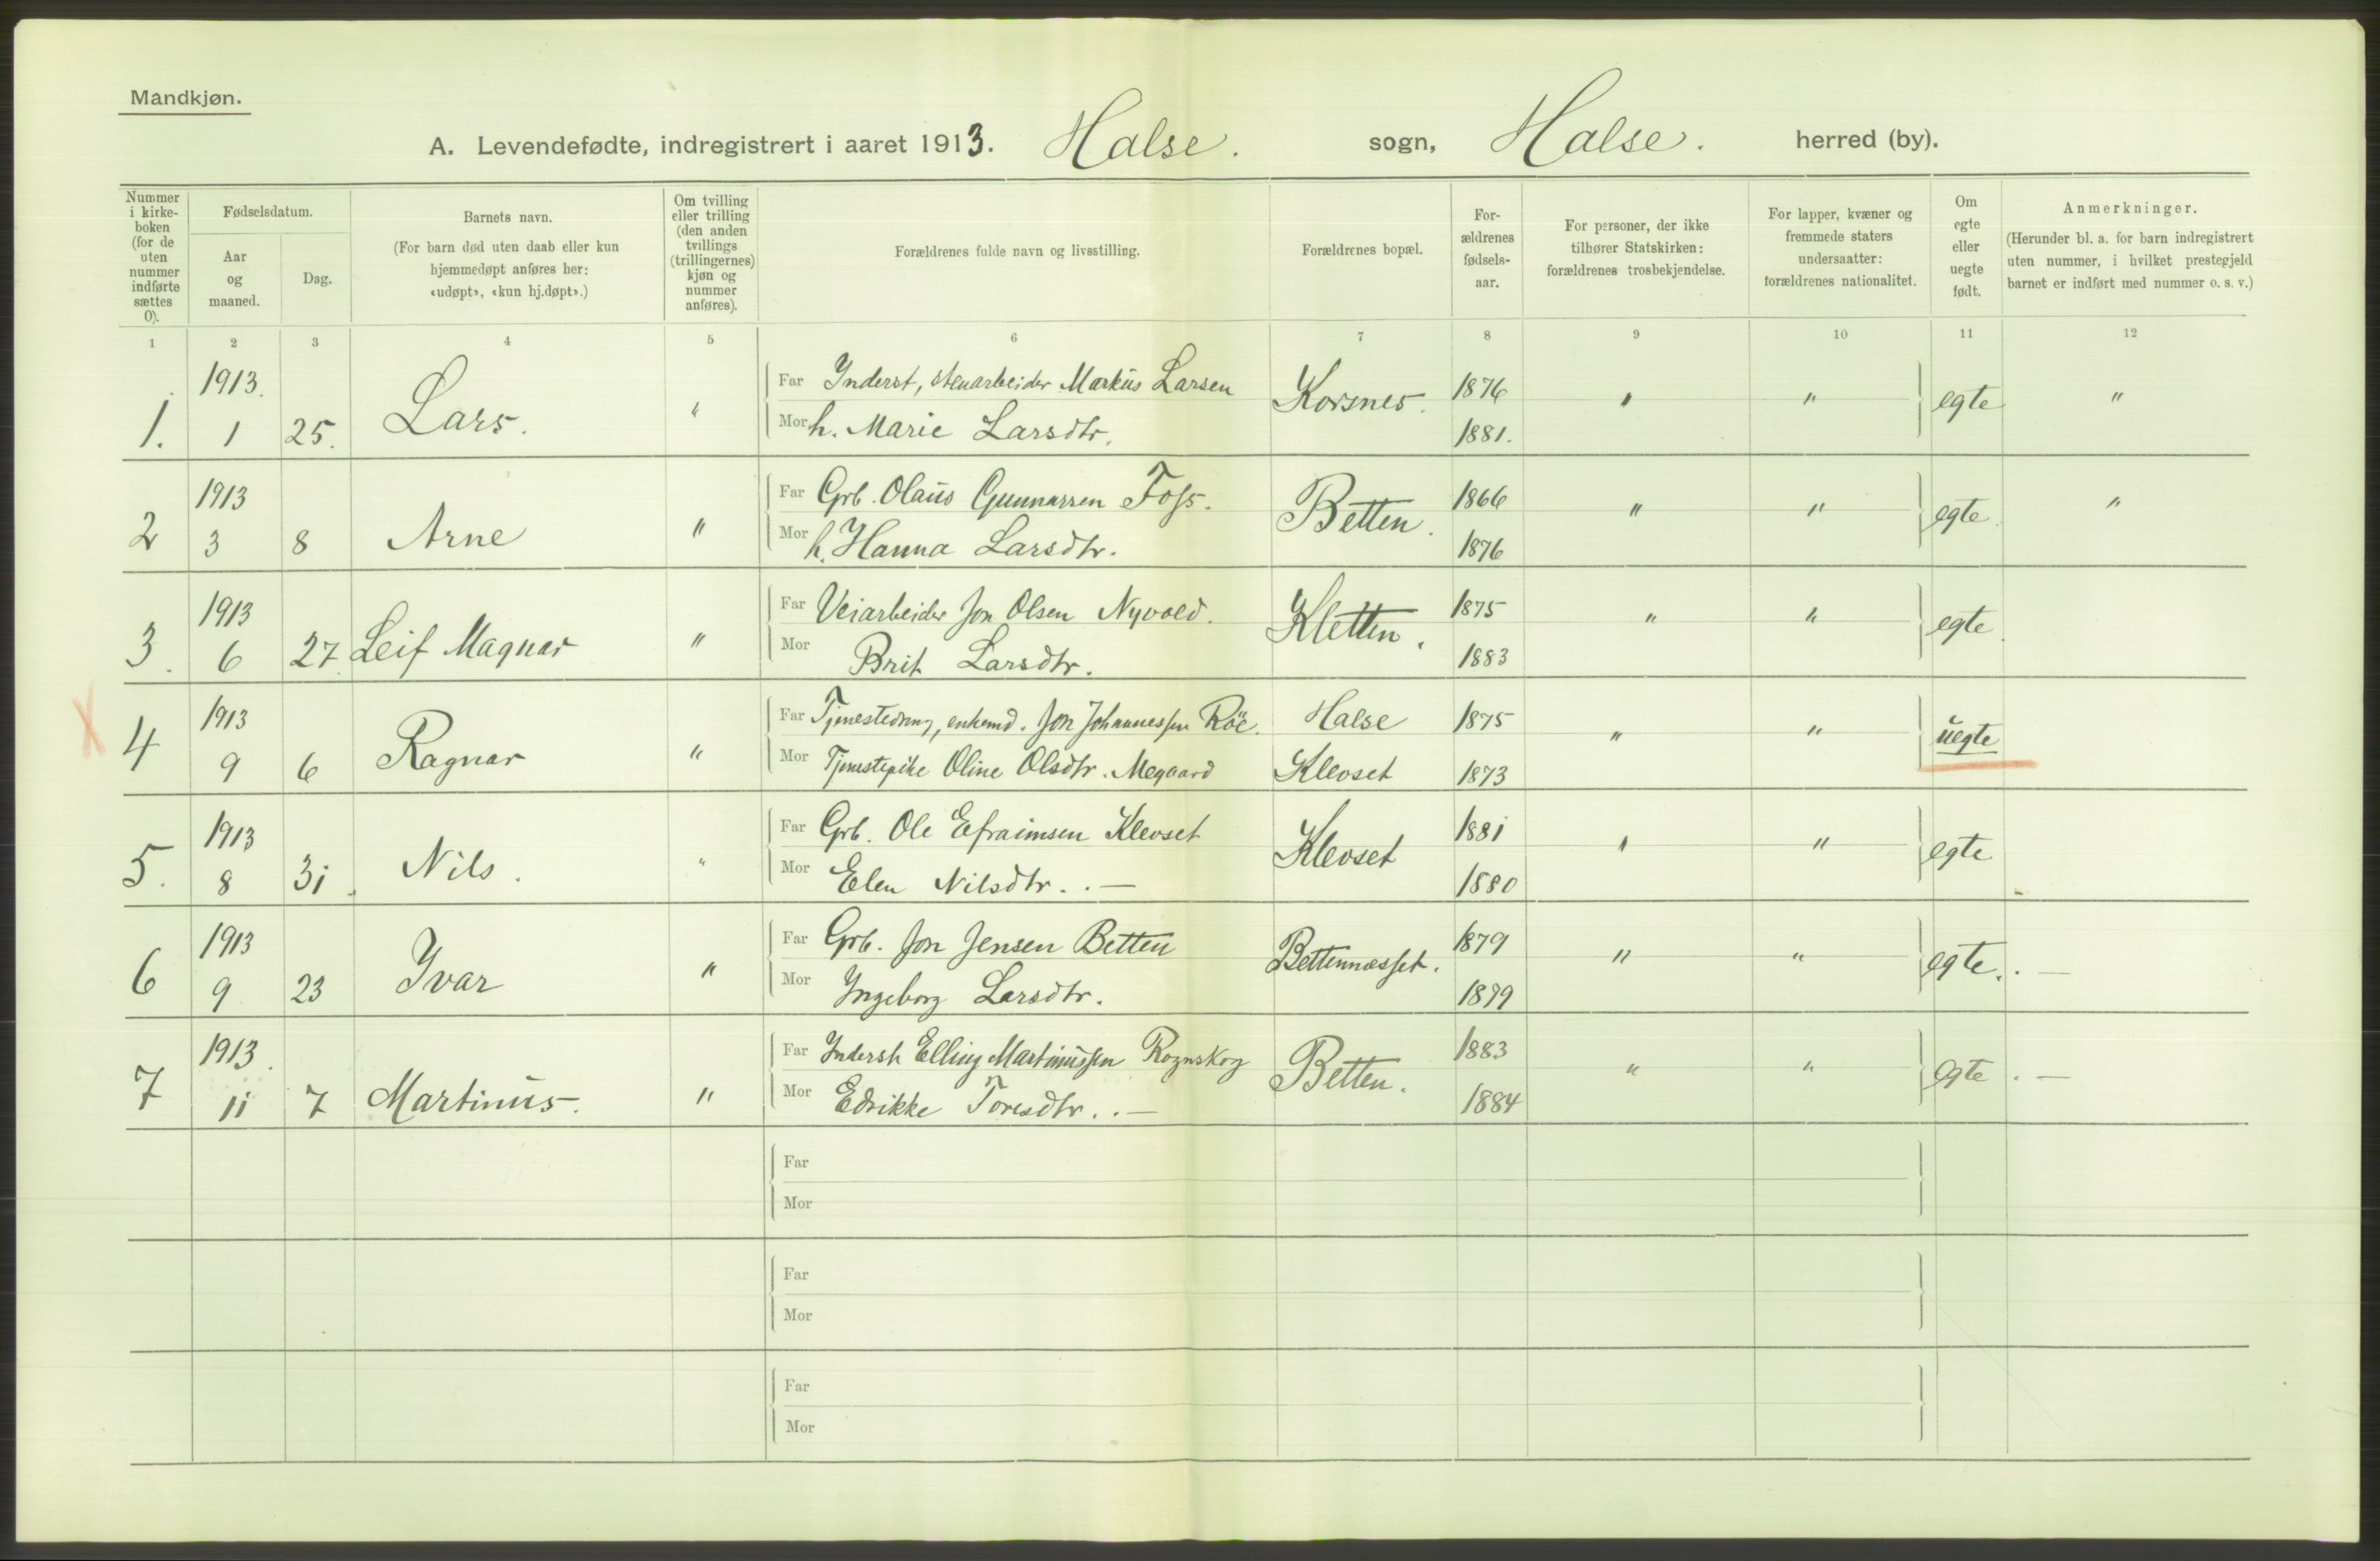 Mandkjøn.
A. Levendefødte, indregistrert i aaret 1913. Halse. sogn, Halse. herred (by).
Nummer i kirke- boken (for de uten nummer indførte sættes 0).
Fødselsdatum.
Aar og maaned.
Dag.
Barnets navn.
(For barn død uten daab eller kun hjemmedøpt anføres her: «udøpt», «kun hj.døpt».)
Om tvilling eller trilling (den anden tvillings (trillingernes) kjøn og nummer anføres).
Forældrenes fulde navn og livsstilling.
Forældrenes bopæl.
For- ældrenes fødsels- aar.
For personer, der ikke tilhører Statskirken: forældrenes trosbekjendelse.
For lapper, kvæner og fremmede staters undersaatter: forældrenes nationalitet.
Om egte eller uegte født.
Anmerkninger.
(Herunder bl. a. for barn indregistrert uten nummer, i hvilket prestegjeld barnet er indført med nummer o. s. v.)
1 2 3 4 5 6 7 8 9 10 11 12
1913. Far Inderst, stenarbeider Markus Larsen Korsnes. 1876
1. 1 25. Lars. " Mor h. Marie Larsdtr. 1881. " " egte "
1913 Far Grb. Olaus Gunnarsen Foss. Betten. 1866
2 3 8 Arne " Mor h. Hanna Larsdtr. 1876 " " egte. "
1913 Far Veiarbeider Jon Olsen Nyvold. Kletten. 1875
3. 6 27. Leif Magnar " Mor Brit Larsdtr. 1883 " " egte.
X 1913 Far Tjenestedreng, enkemd. Jon Johannessen Röe. Halse 1875
4 9 6 Ragnar " Mor Tjenestepike Oline Olsdtr. Megaard Klevset 1873 " " uegte
1913 Far Grb. Ole Efraimsen Klevset Klevset 1881
5. 8 31. Nils. " Mor Elen Nilsdtr. . — 1880 " " egte
1913 Far Grb. Jon Jensen Betten Bettennæsset. 1879
6 9 23 Ivar " Mor Ingeborg Larsdtr. 1879 " " egte. . —
1913. Far Inderst Elling Martinussen Rognskog Betten. 1883
7 11 7 Martinus. " Mor Edrikke Toresdtr. . — 1884 " " egte . —
Far
Mor
Far
Mor
Far
Mor